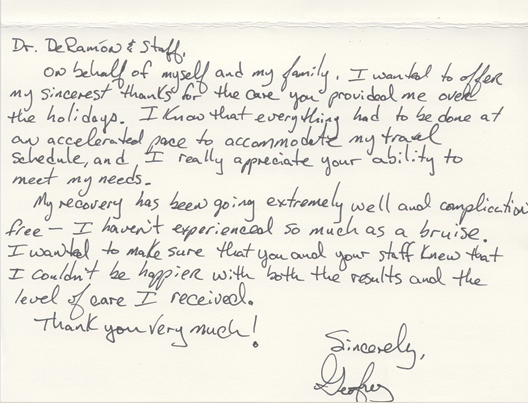 Dr. DeRamón & Staff,
On behalf of myself and my family, I wanted to offer
my sincerest thanks for the care you provided me over
the holidays. I know that everything had to be done at
an accelerated pace to accommodate my travel
schedule, and I really appreciate your ability to
meet my needs.
My recovery has been going extremely well and complication
free — I haven't experienced so much as a bruise.
I wanted to make sure that you and your staff knew that
I couldn't be happier with both the results and the
level of care I received.
Thank you very much!
Sincerely,
Geofrey